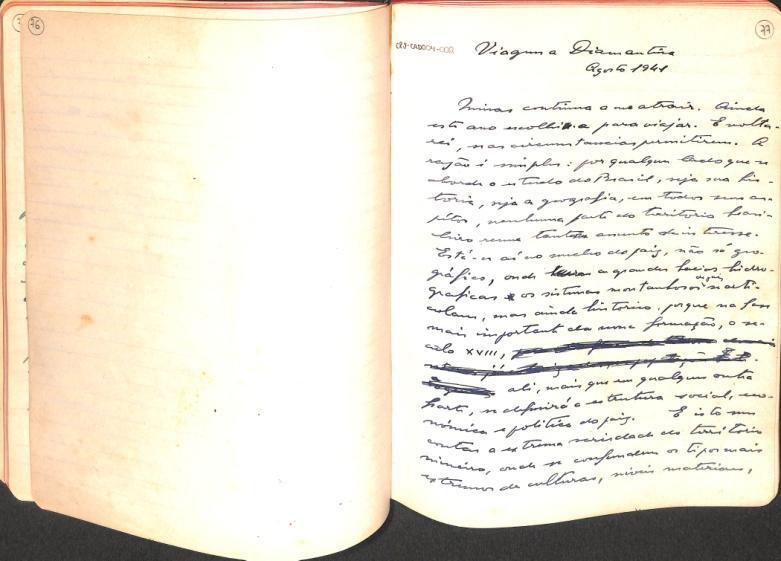 76
77
CPJ-CADO
Viagem a Diamantina
Agosto 1941
Minas continua a me atrair. Ainda
este ano escolhi-a para viajar. E volta-
rei, se as circumstancias permitirem. A
razão é simples: por qualquer lado que se
aborde o estudo do Brasil, seja sua his-
toria, seja a geografia, em todos seus as-
pétos, nenhuma parte do territorio brasi-
leiro reune tanto assunto de interesse.
Está-se aí no nucleo do país, não só geo-
gráfico, onde as grandes bacias hidro-
graficas e os sistemas montanhosos se arti-
culam, mas ainda historico, porque na fase
mais importante da nossa formação, o se-
culo XVIII,
ali, mais que em qualquer outra
parte, se definirá a estrutura social, eco-
nómica e politica do país. E isto sem
contar a extrema variedade do territorio
mineiro, onde se confundem os tipos mais
extremos de culturas, niveis materiais,